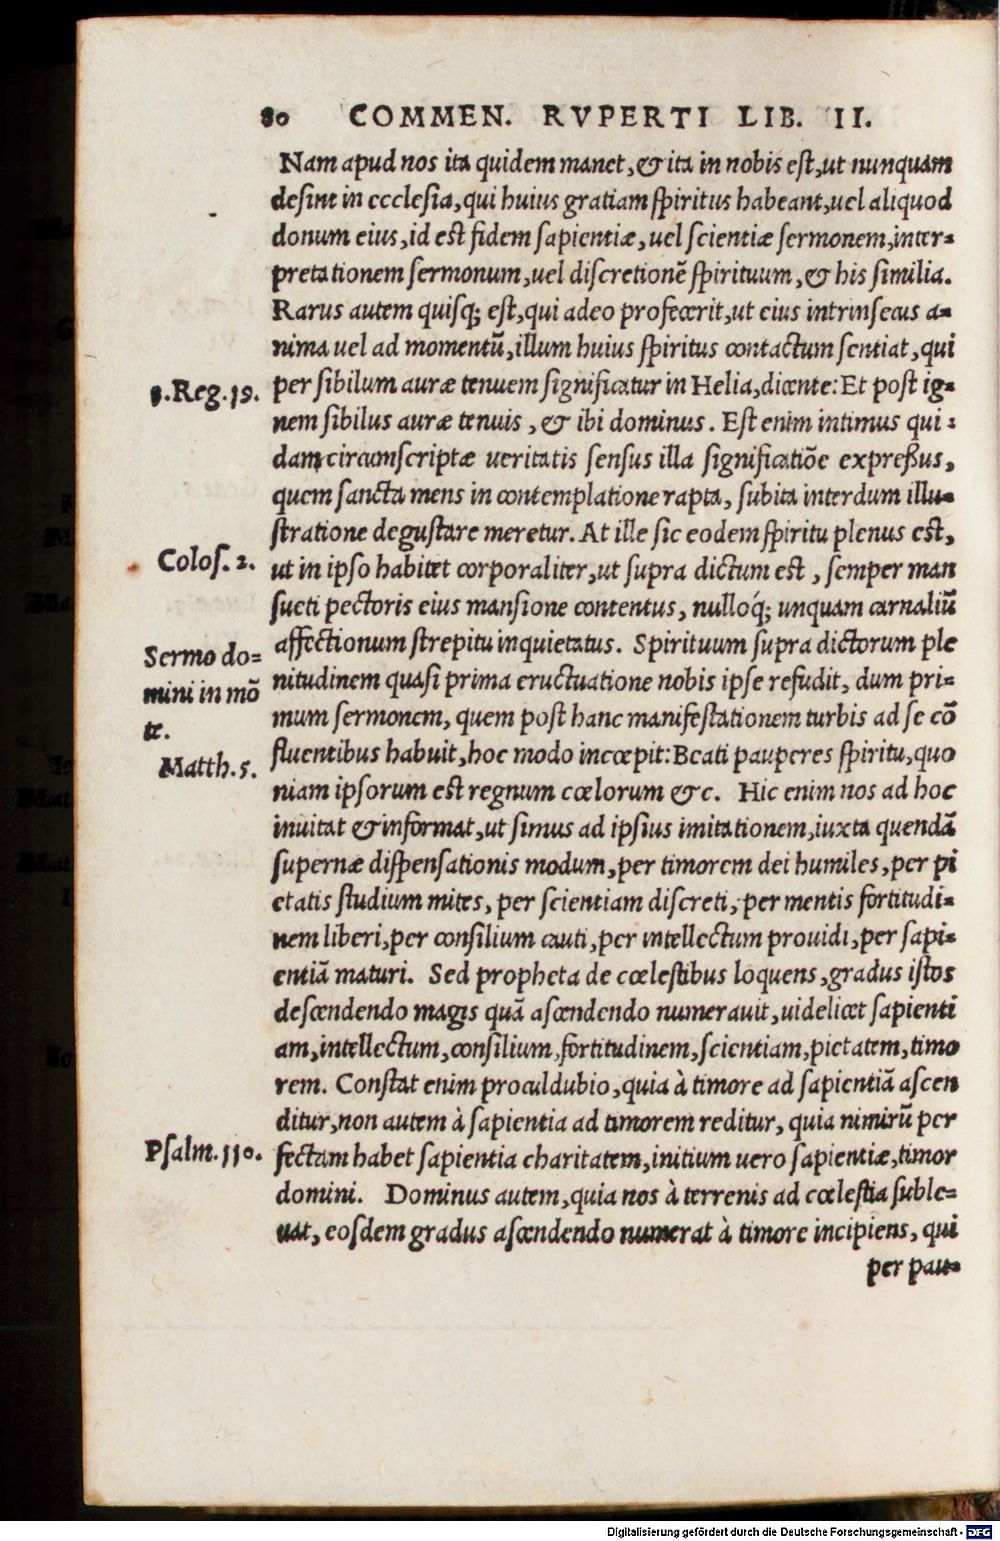 80 COMMEN. RVPERTI LIB. II.
Nam apud nos ita quidem manet, & ita in nobis est, ut nunquam
desint in ecclesia, qui huius gratiam spiritus habeant, uel aliquod
donum eius, id est fidem sapientiæ, uel scientiæ sermonem, inter=
pretationem sermonum, uel discretionẽ spirituum, & his similia.
Rarus autem quisq; est, qui adeo profecerit, ut eius intrinsecus a=
nima uel ad momentũ, illum huius spiritus contactum sentiat, qui
3.Reg.19.
per sibilum auræ tenuem significatur in Helia, dicente: Et post ig=
nem sibilus auræ tenuis, & ibi dominus. Est enim intimus qui=
dam circumscriptæ ueritatis sensus illa significatiõe expreßus,
quem sancta mens in contemplatione rapta, subita interdum illu=
stratione degustare meretur. At ille sic eodem spiritu plenus est,
Colos. 2.
ut in ipso habitet corporaliter, ut supra dictum est, semper man
sueti pectoris eius mansione contentus, nulloq́; unquam carnaliũ
affectionum strepitu inquietatus. Spirituum supra dictorum ple
Sermo do=
mini in mõ
te.
nitudinem quasi prima eructuatione nobis ipse refudit, dum pri=
mum sermonem, quem post hanc manifestationem turbis ad se cõ
fluentibus habuit, hoc modo incœpit: Beati pauperes spiritu, quo
Matth. 5.
niam ipsorum est regnum cœlorum &c. Hic enim nos ad hoc
inuitat & informat, ut simus ad ipsius imitationem, iuxta quendã
supernæ dispensationis modum, per timorem dei humiles, per pi
etatis studium mites, per scientiam discreti, per mentis fortitudi=
nem liberi, per consilium cauti, per intellectum prouidi, per sapi=
entiã maturi. Sed propheta de cœlestibus loquens, gradus istos
descendendo magis quã ascendendo numerauit, uidelicet sapienti
am, intellectum, consilium, fortitudinem, scientiam, pietatem, timo
rem. Constat enim proculdubio, quia à timore ad sapientiã ascen
ditur, non autem à sapientia ad timorem reditur, quia nimirũ per
Psalm.110.
fectam habet sapientia charitatem, initium uero sapientiæ, timor
domini. Dominus autem, quia nos à terrenis ad cœlestia suble=
uat, eosdem gradus ascendendo numerat à timore incipiens, qui
per pau=
Digitalisierung gefördert durch die Deutsche Forschungsgemeinschaft - DFG